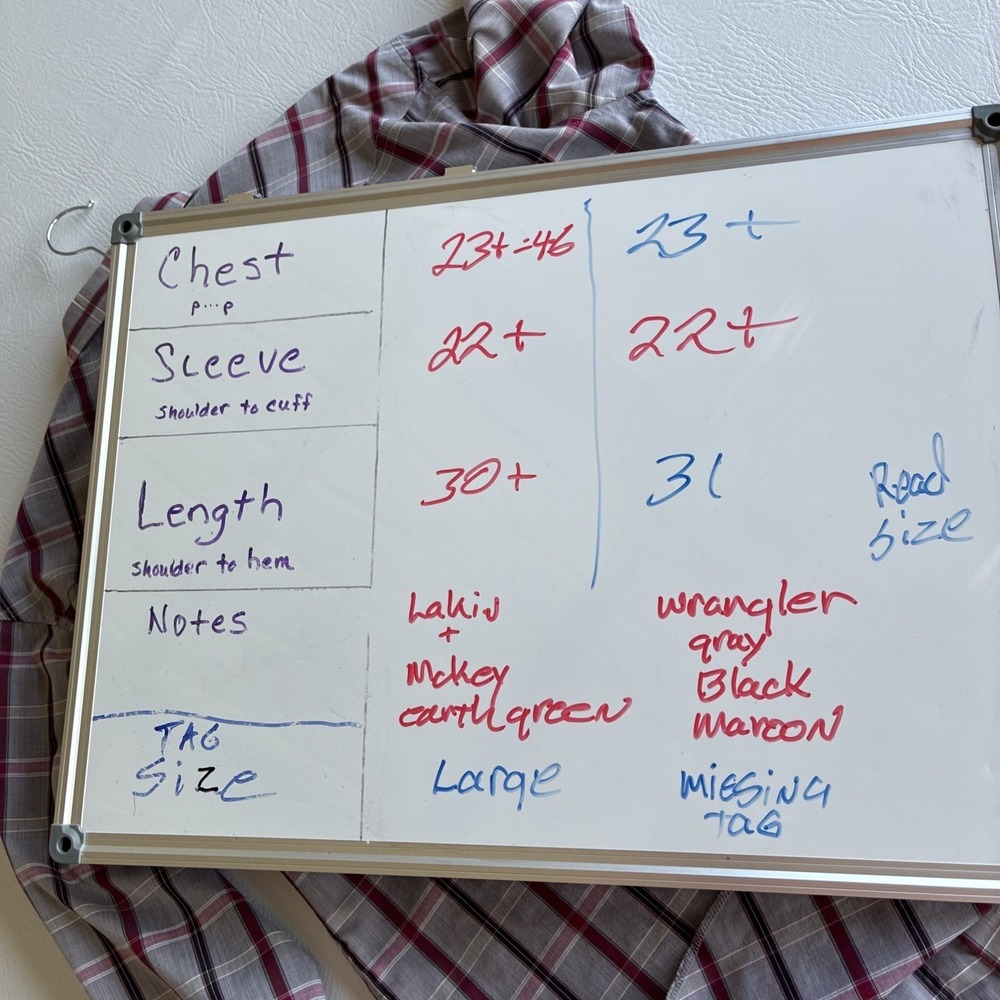 Chest 23+=46 23+
P...P
Sleeve 22+ 22+
shoulder to cuff
Length 30+ 31 Read
size
shoulder to hem
Notes
+ wrangler
gray
McKey Black
earth green Maroon
TAG
Size Large Missing
TAG